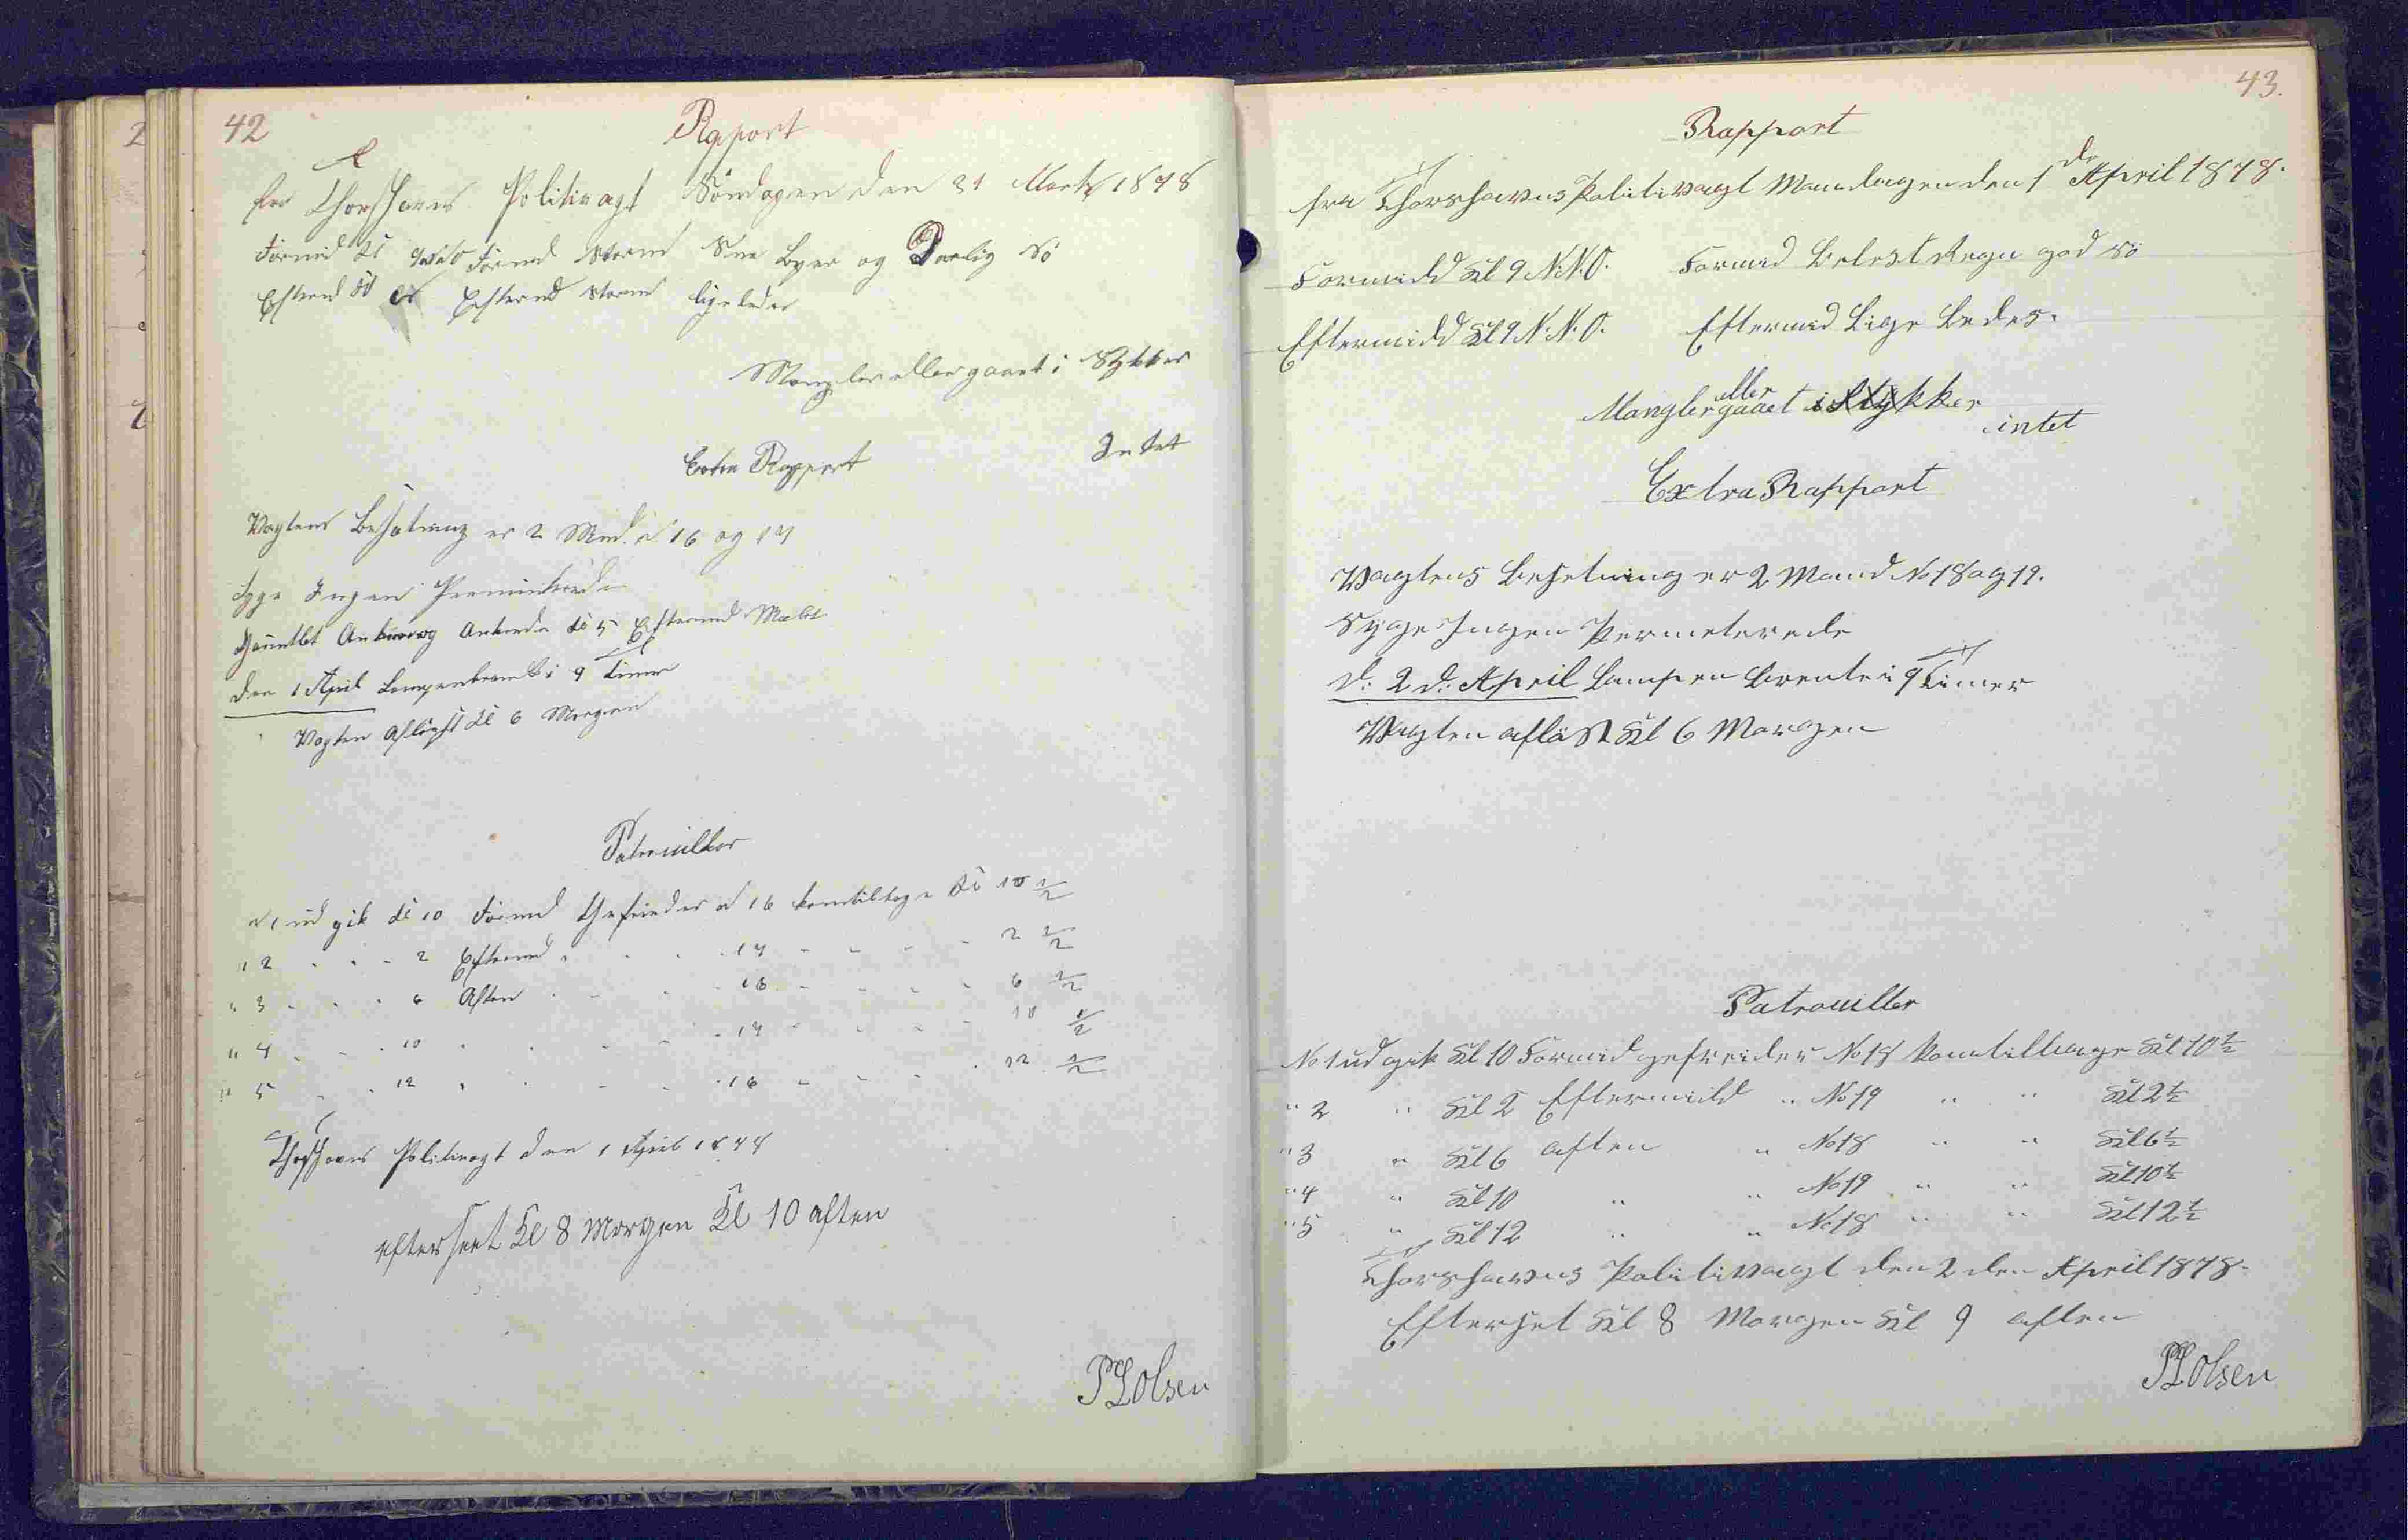 42
Rapport
fra Thorshavns Politivagt Søndagen den 31 Marts 1878
Formd Kl 9 Formd Storm Snee Byer og Daarlig Sö
Eftermd Kl Eftermd Storm ligeledes
Mangler eller gaaet i Stykker
Intet
Extra Rapport
Vagtens Besætning er 2 Mand N 16 og 17
Syge Ingen Permitterede
Ankom Kl 5 Eftermd
den 1 April Lampen brændt i 9 Timer
Vagten Aflöst Kl 6 Morgen
Patrouiller
N 1 ud gik Kl 10 Formd Gefreider N 16 kom tilbage Kl 10 1/2
" 2 - - - 2 Eftermd - - - 17 - - - - 2 1/2
" 3 - - - 6 Aften - - - 16 - - - - 6 1/2
" 4 - - - 10 - - - - 17 - - - - 10 1/2
" 5 - - - 12 - - - - 16 - - - - 12 1/2
Thorshavns Politivagt den 1 April 1878
efterseet Kl 8 Morgen Kl 10 aften
PL Olsen
43.
Rapport
fra Thorshavns Politivagt Mandagen den 1 de April 1878.
Formidd Kl 9 N.N.O. Formid Belest Regn god Sö
Eftermidd Kl 9 N.N.O. Eftermid Lige Ledes.
Mangler eller gaaet i Stykker
intet
Extra Rapport
Vagtens Besetning er 2 Mand No 18 og 19.
Syge Ingen Permeterede
d: 2 d: April Lampen brente i 9 Timer
Vagten aflöst Kl 6 Morgen
Patrouiller
No 1 ud gik Kl 10 Formid gefreider No 18 kom tilbage Kl 10 1/2
" 2 " Kl 2 Eftermidd " No 19 " " Kl 2 1/2
" 3 " Kl 6 aften " No 18 " " Kl 6 1/2
" 4 " Kl 10 " " No 19 " " Kl 10 1/2
" 5 " Kl 12 " " No 18 " " Kl 12 1/2
Thorshavns Politivagt den 2 den April 1878.
Efterset Kl 8 Morgen Kl 9 aften
PL Olsen